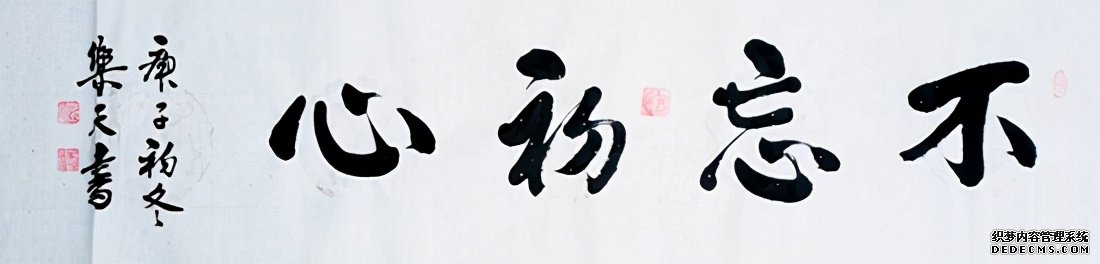 不忘初心
庚子初冬
樂天書
织梦内容管理系统
DEDECMS.COM